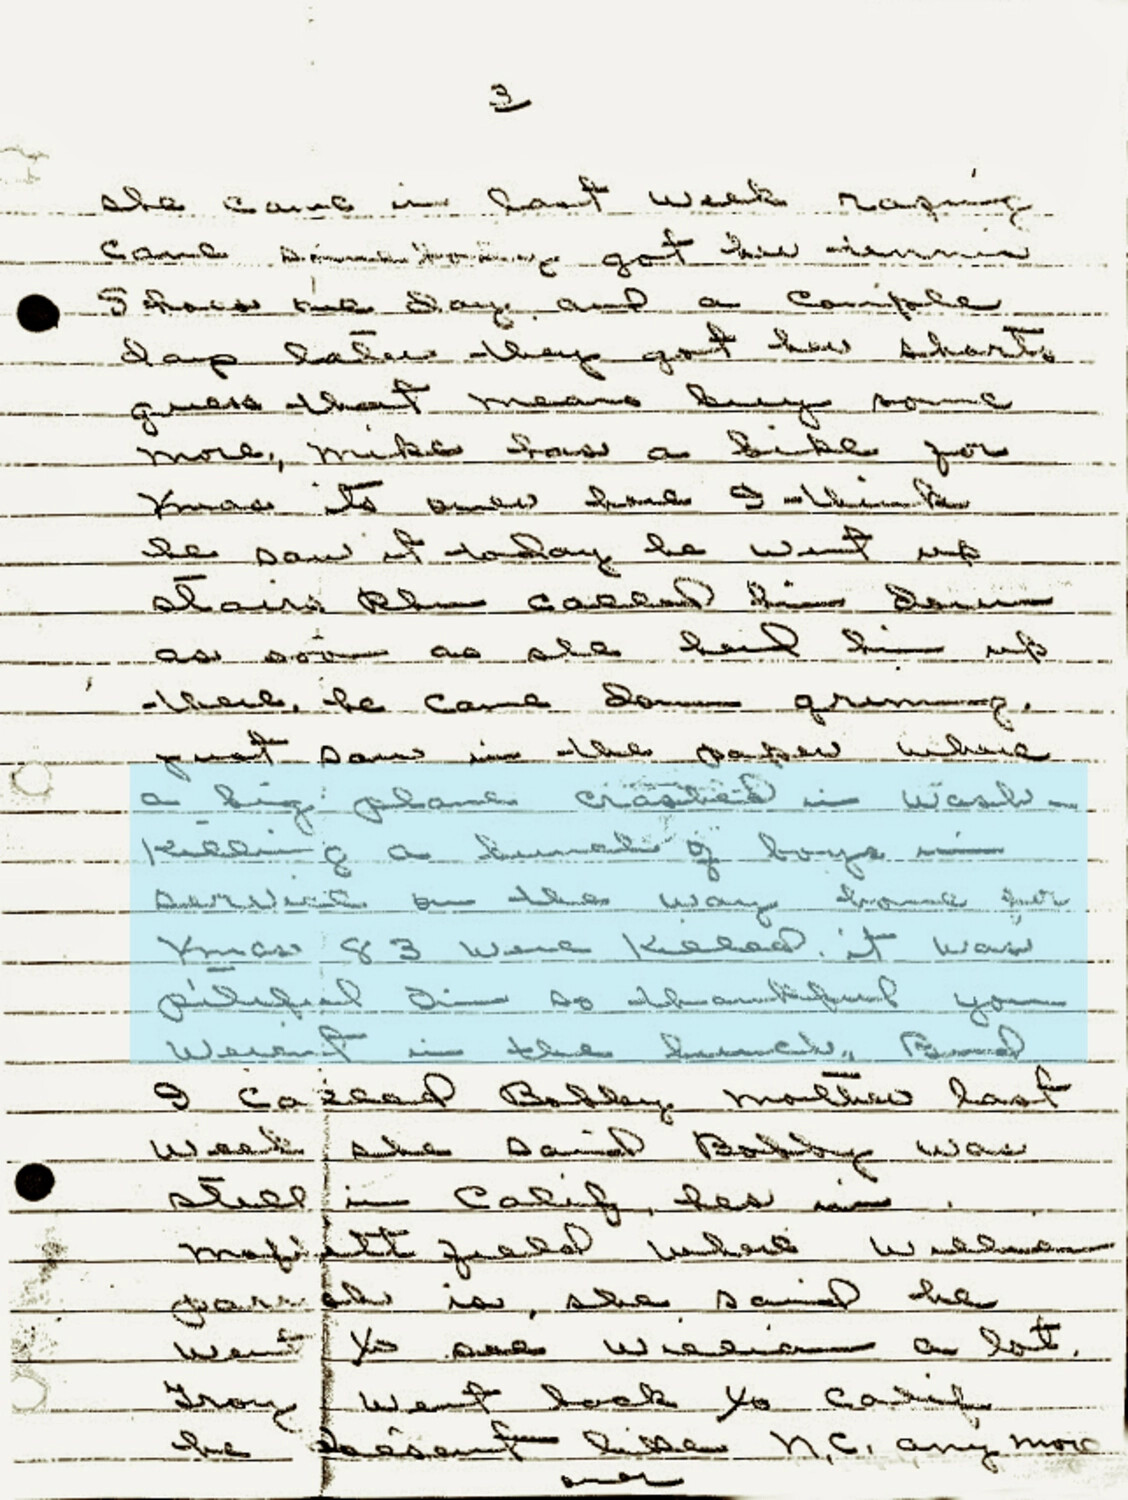 3
she came in last week raping
cane something got her tennis
Shoes one day, and a couple
days later they got her shorts
guess that means buy some
more, Mike has a bike for
Xmas its over here I think
he saw it today he went up
stairs called him down
as soon as she herd him up
there, he came down grinning.
just saw in the paper where
a big plane crashed in Wash -
Killing a bunch of boys in
service on the way home for
Xmas 83 were Killed. it was
pitiful I'm so thankful you
weren't in the bunch,, Bud
I called Bobby mother last
week she said Bobby was
still in Calif, hes in
Moffitt field where William
is, she said he
went to see William a lot.
Troy went back to Calif
he doesent like N,C, any more
over